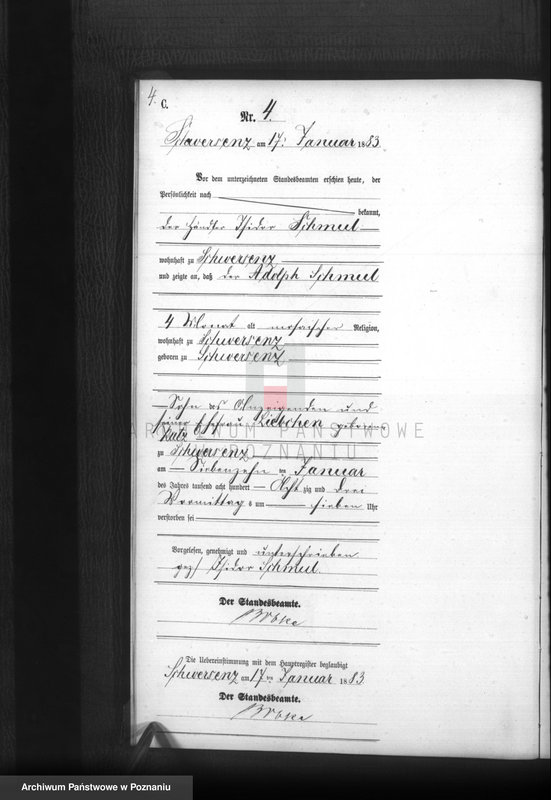 4.
C.
Nr. 4.
Schwersenz am 17. Januar 1883
Vor dem unterzeichneten Standesbeamten erschien heute, der
Persönlichkeit nach
bekannt,
der Händler Isidor Schmul
wohnhaft zu Schwersenz
und zeigte an, daß der Adolph Schmul
4 Monat alt mosaischer Religion,
wohnhaft zu Schwersenz
geboren zu Schwersenz
Sohn des Anzeigenden und
seiner Ehefrau Liebchen geborene
Katz
ARCHIWUM PAŃSTWOWE
W POZNANIU
zu Schwersenz
am Siebenzehnten Januar
des Jahres tausend acht hundert Acht zig und drei
Vormittags um sieben Uhr
verstorben sei
Vorgelesen, genehmigt und unterschrieben
gez. Isidor Schmul.
Der Standesbeamte.
Die Uebereinstimmung mit dem Hauptregister beglaubigt
Schwersenz am 17ten Januar 1883
Der Standesbeamte.
Archiwum Państwowe w Poznaniu